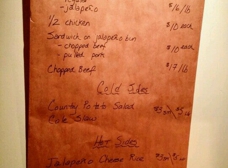 - jalapeño $16/lb
1/2 chicken $10 each
Sandwich on jalapeño bun
- chopped beef $10 each
- pulled pork
Chopped Beef $17/lb
Cold Sides
Country Potato Salad
Cole Slaw
Hot Sides
Jalapeño Cheese Rice